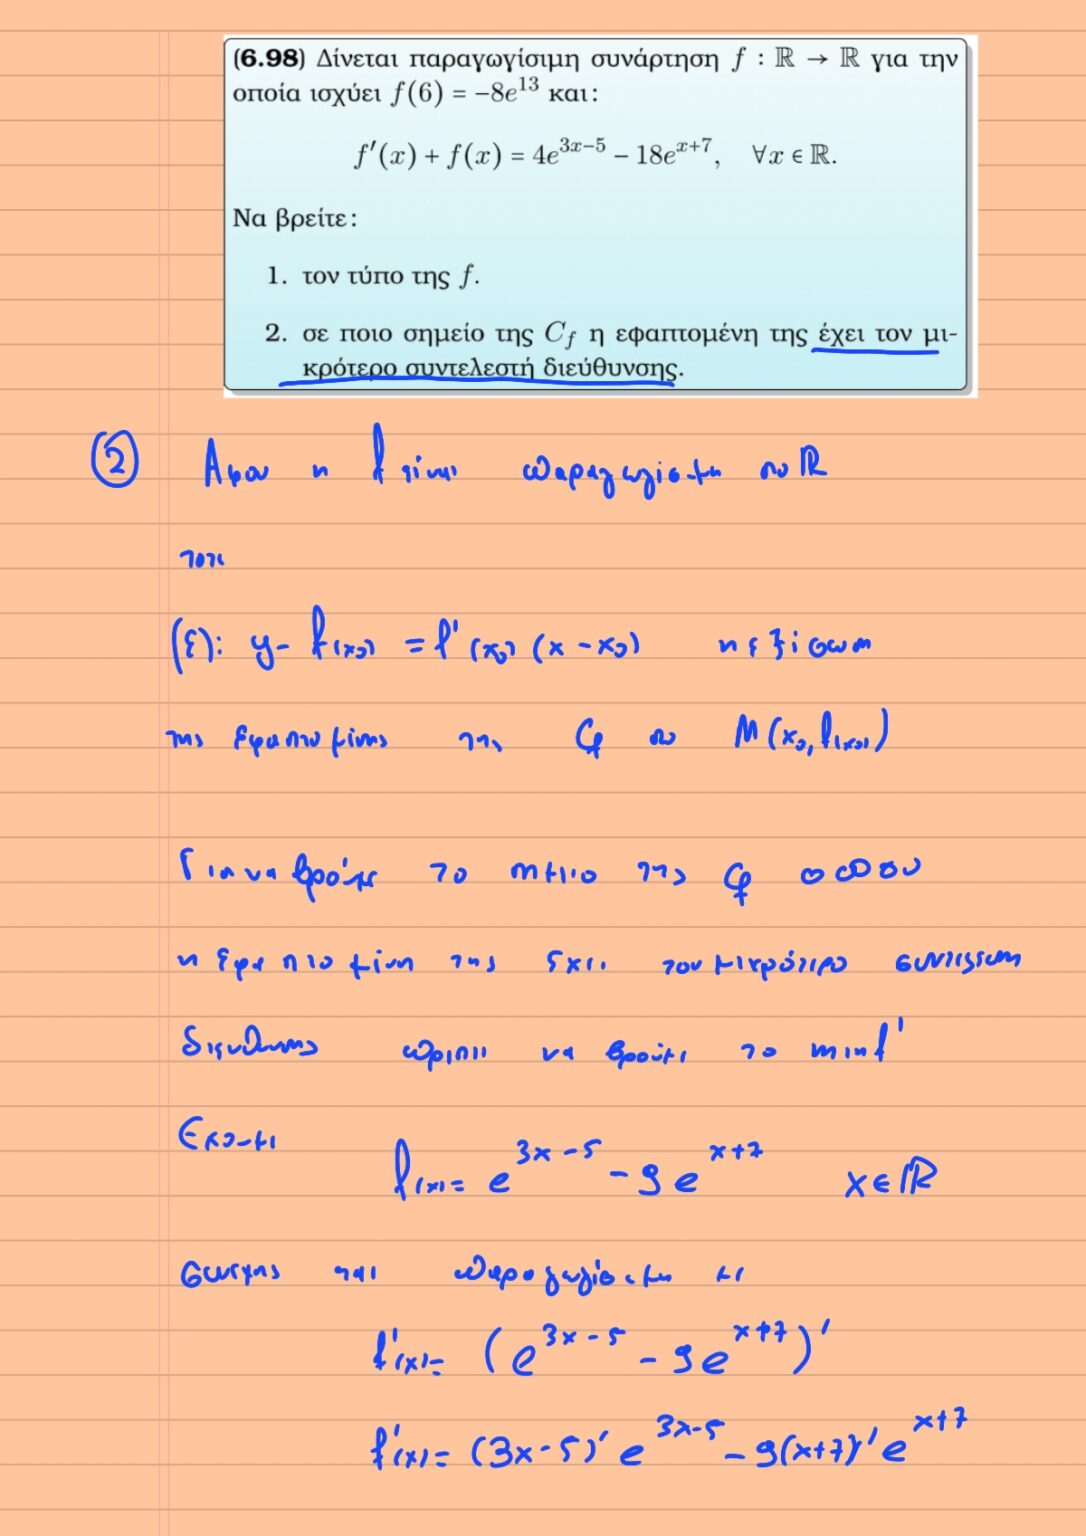 (6.98) Δίνεται παραγωγίσιμη συνάρτηση f : ℝ → ℝ για την
οποία ισχύει f(6) = −8e^13 και:
f′(x) + f(x) = 4e^{3x−5} − 18e^{x+7}, ∀x ∈ ℝ.
Να βρείτε:
1. τον τύπο της f.
2. σε ποιο σημείο της C_f η εφαπτομένη της έχει τον μι-
κρότερο συντελεστή διεύθυνσης.
② Αφου η f είναι παραγωγίσιμη στο ℝ
τότε
(ε): y - f(x₀) = f'(x₀) (x - x₀) η εξίσωση
της εφαπτομένης της C_f στο M(x₀, f(x₀))
Για να βρούμε το σημείο της C_f όπου
η εφαπτομένη της έχει τον μικρότερο συντελεστή
διεύθυνσης πρέπει να βρούμε το min f'
Εχουμε f(x) = e^{3x-5} - 9e^{x+7} x ∈ ℝ
συνεχης και παραγωγίσιμη με
f'(x) = (e^{3x-5} - 9e^{x+7})'
f'(x) = (3x-5)' e^{3x-5} - 9(x+7)' e^{x+7}